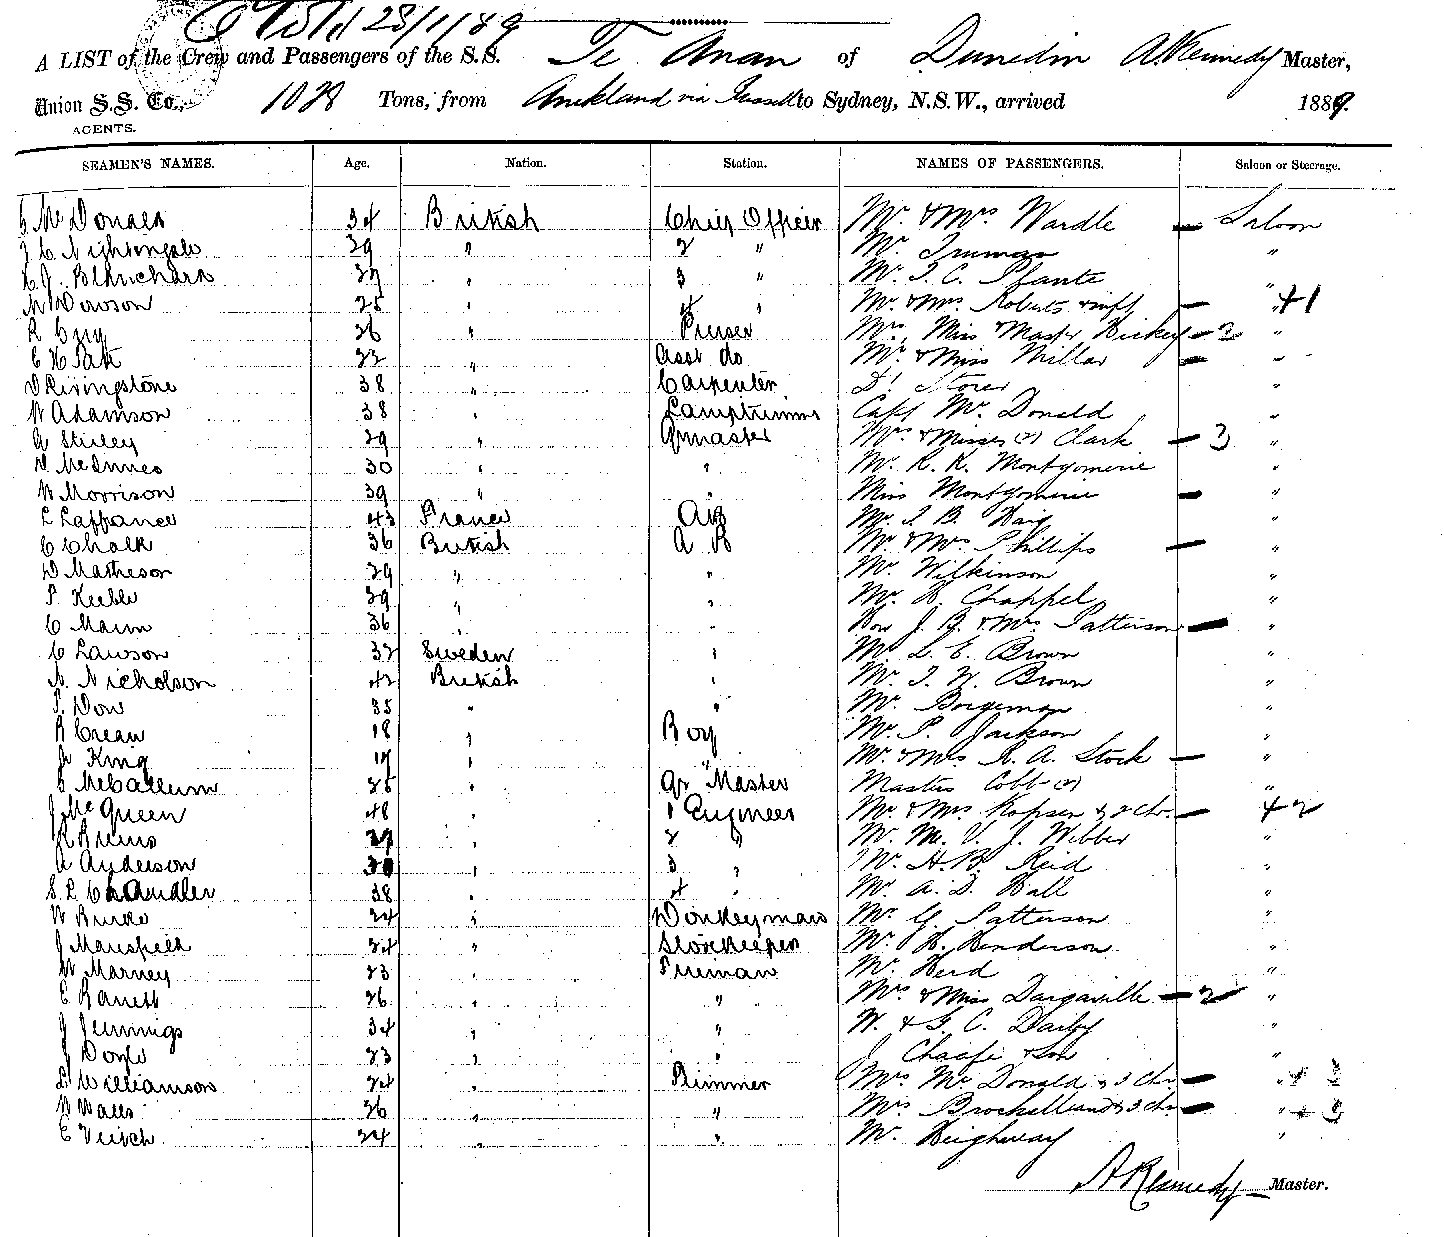 28/1/89
A LIST of the Crew and Passengers of the S.S. Te Anau of Dunedin A. Kennedy Master,
Union S.S. Co., 1028 Tons, from Auckland via Russell to Sydney, N.S.W., arrived 1889.
AGENTS.
SEAMEN'S NAMES. Age. Nation. Station. NAMES OF PASSENGERS. Saloon or Steerage.
Mc Donald 34 British Chief Officer Mr. & Mrs Wardle — Saloon
Nightingale 29 " 2 " Mr. Truman "
Blanchard 27 " 3 " Mr. I. C. Plante "
Dawson 25 " 4 " Mr. & Mrs Roberts & inft — " +1
R 26 " Purser Mrs, Miss & Master Hickey — 3 "
C H 22 " Asst do Mr. & Miss Millar — "
D Livingstone 38 " Carpenter Dr. Storer "
W Adamson 38 " Lamptrimmer Capt Mc Donald "
A Stirley 29 " Qrmaster Mrs & Misses (2) Clark — 3 "
D McInnes 30 " " Mr. R. K. Montgomerie "
W Morrison 39 " " Miss Montgomerie — "
L Laffrance 43 France AB Mr. I. B. Haig "
C Chalk 36 British A B Mr. & Mrs Phillips — "
D Matheson 29 " " Mr. Wilkinson "
P. Keeble 29 " " Mr. H. Chappel "
C Mann 36 " " Hon J. B. & Mrs Patterson — "
C Lawson 32 Sweden " Mr. L. E. Brown "
N. Nicholson 42 British " Mr. T. W. Brown "
P. Dow 35 " " Mr. Borgeman "
R Crean 18 " Boy Mr. P. Jackson "
Jn King 17 " " Mr. & Mrs R. A. Stock — "
McCallum 25 " Qr Master Masters Cobb (2) "
J McQueen 48 " 1 Engineer Mr. & Mrs Kopsen & 2 Chr. — +2
R Burns 37 " 2 " Mr. Mc. V. J. Webber "
A Anderson 30 " 3 " Mr. H. B. Reid "
S. L Chandler 38 " 4 " Mr. A. D. Hall "
W Burke 24 " Donkeyman Mr. G. Patterson "
J Mansfield 24 " Storekeeper Mr. H. Henderson "
W Marney 23 " Fireman Mr. Herd "
E Barrett 26 " " Mrs & Miss Dargaville — 2 "
J Jennings 34 " " W. & G. C. Darby "
J Doyle 23 " " J Chaafe & Son "
L Williamson 24 " Trimmer Mrs Mc Donald & 3 Chr. — " + 3
W Walls 26 " " Mrs & 3 Chr — " + 3
C Veitch 24 " " Mr. Heighway "
A Kennedy Master.